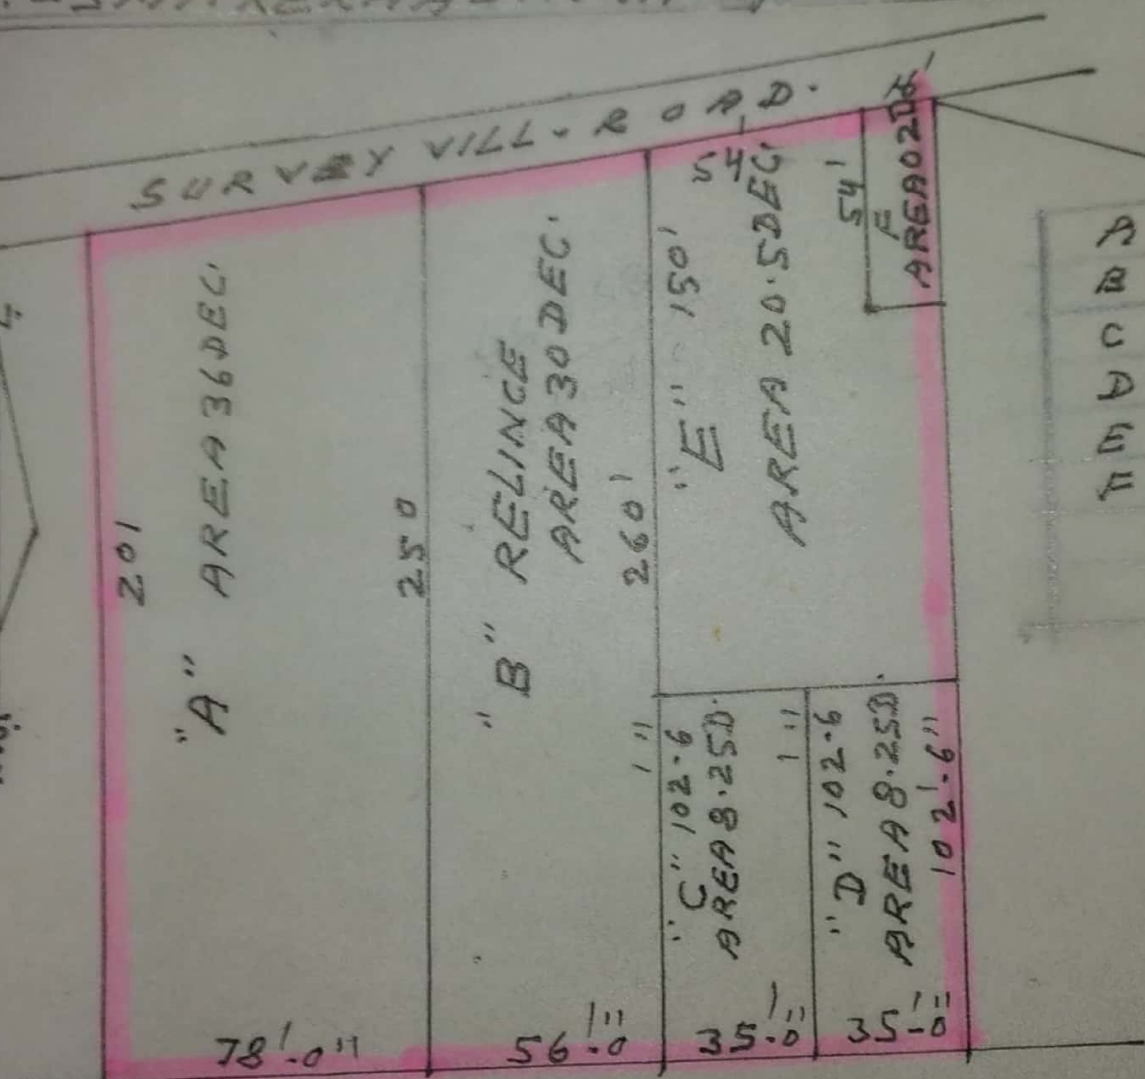 SURVEY VILL. ROAD.
201
"A" AREA 36DEC.
250
"B" RELINCE
AREA 30 DEC.
260'
"E" 150'
54
AREA 20.5DEC
54'
F
AREA02D
"C" 102.6
AREA 8.25D.
"D" 102.6
AREA 8.25D.
102'.6"
78'.0"
56'.0"
35'.0"
35'-0"